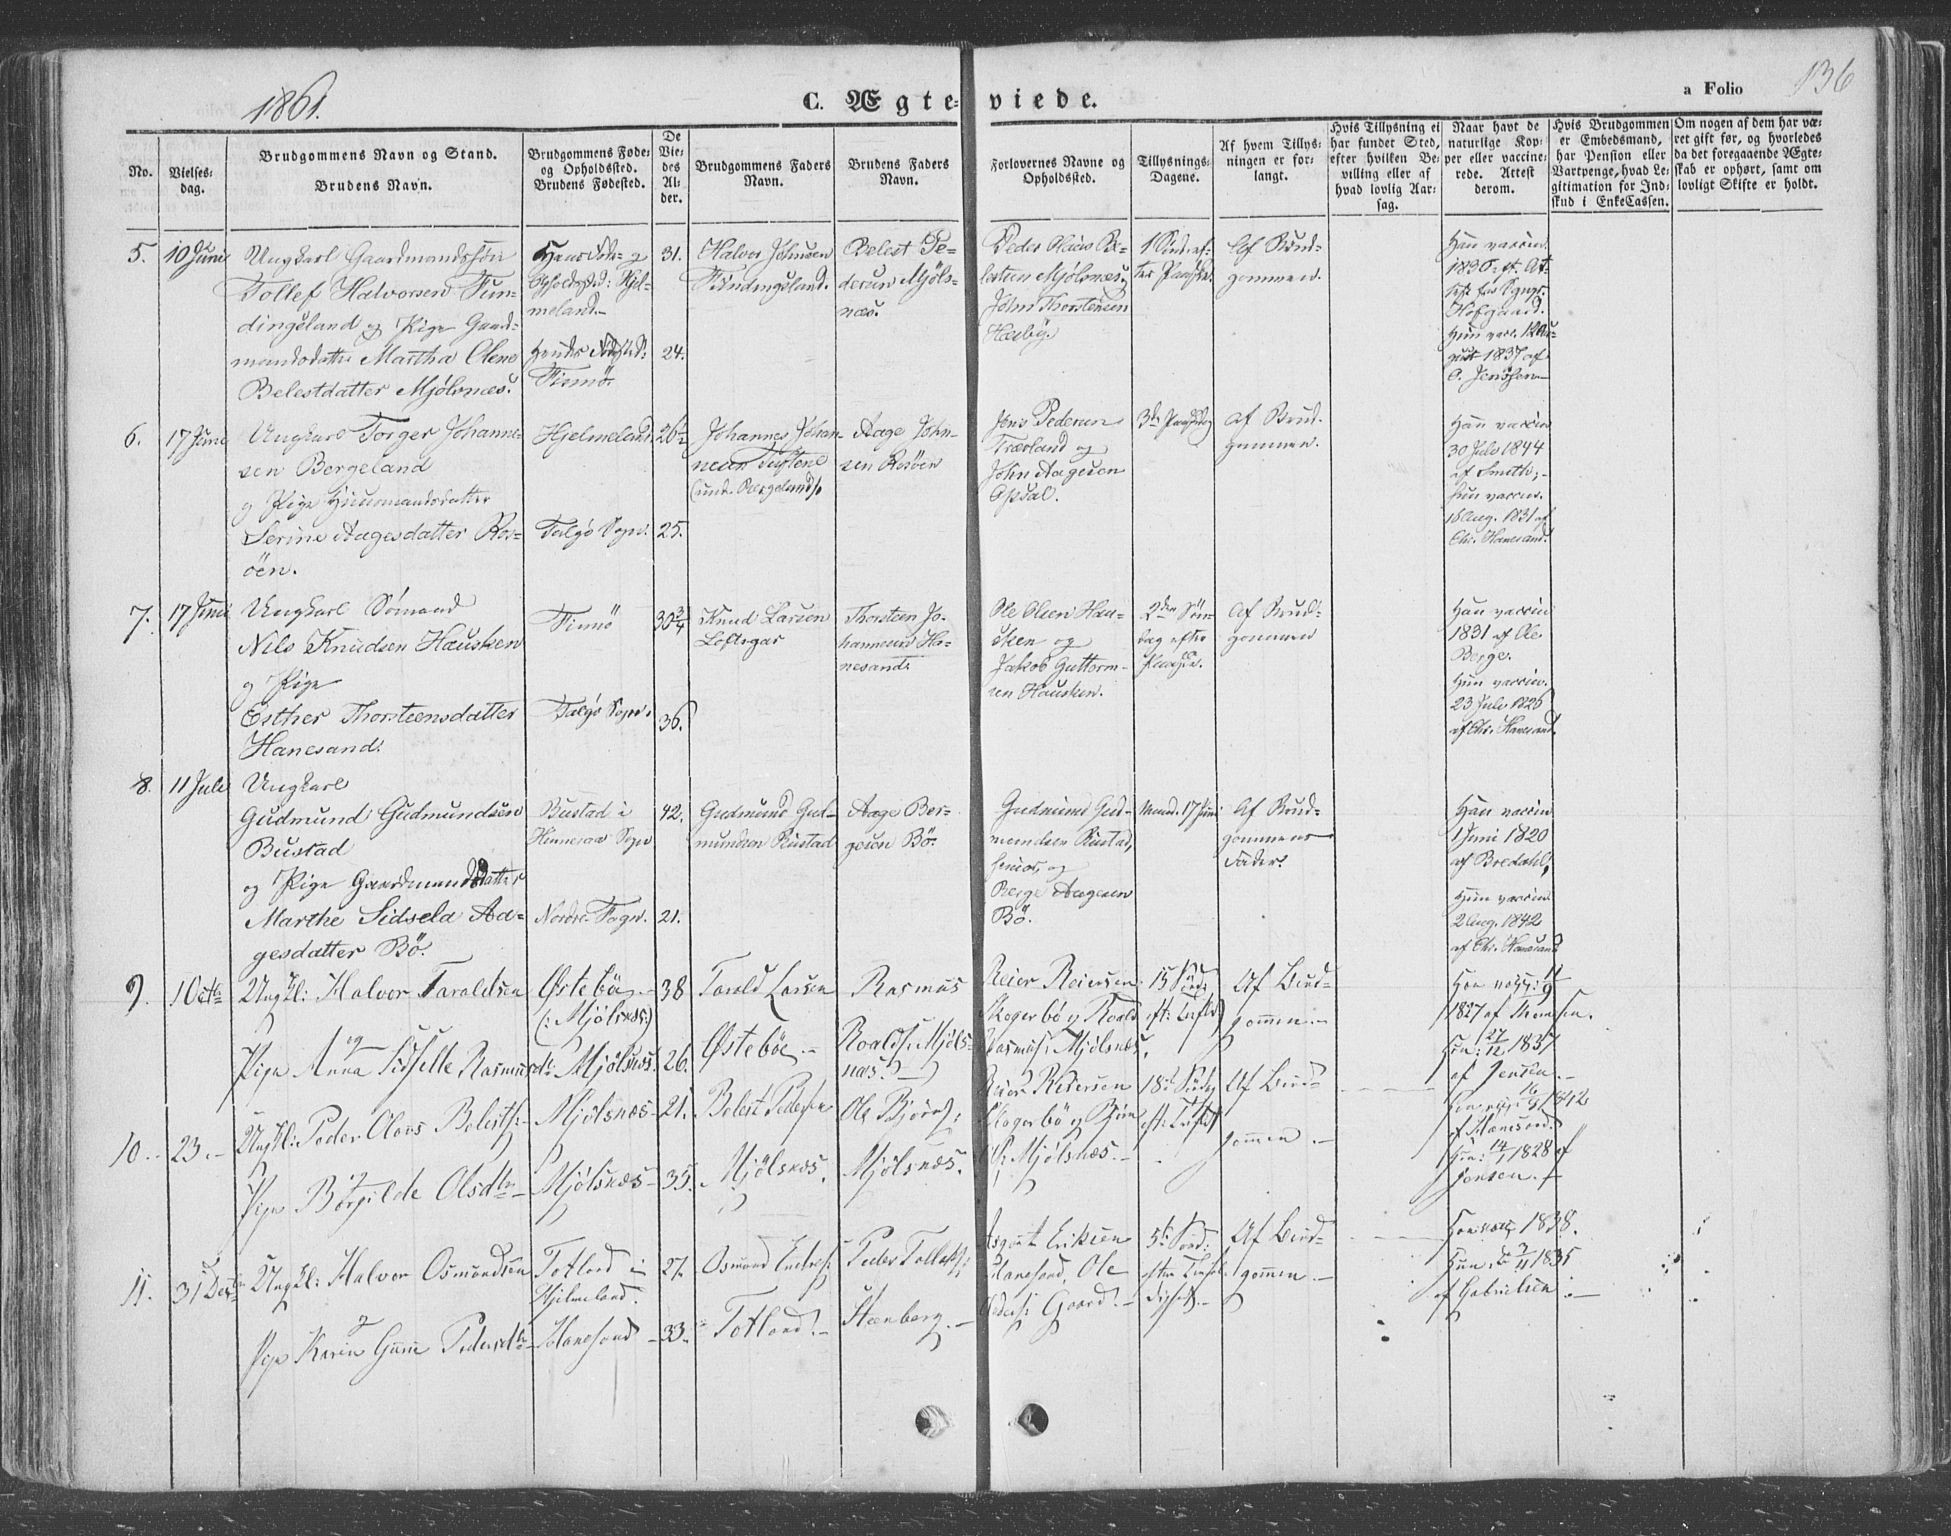 1861.
C. Ægte-
viede.
a Folio
136
No.
Vielses-
dag.
Brudgommens Navn og Stand.
Brudens Navn.
Brudgommens Føde-
og Opholdssted.
Brudens Fødested.
De
Vie-
des
Al-
der.
Brudgommens Faders
Navn.
Brudens Faders
Navn.
Forlovernes Navne og
Opholdssted.
Tillysnings-
Dagene.
Af hvem Tillys-
ningen er for-
langt.
Hvis Tillysning ei
har fundet Sted,
efter hvilken Be-
villing eller af
hvad lovlig Aar-
sag.
Naar havt de
naturlige Kop-
per eller vaccine-
rede. Attest
derom.
Hvis Brudgommen
er Embedsmand,
har Pension eller
Vartpenge, hvad Le-
gitimation for Ind-
skud i EnkeCassen.
Om nogen af dem har væ-
ret gift før, og hvorledes
da det foregaaende Ægte-
skab er ophørt, samt om
lovligt Skifte er holdt.
5.
10 Juni
Ungkarl Gaardmandssøn
Tollef Halvorsen Fun-
dingsland og Pige Gaard-
mandsdatter Martha Olene
Belestdatter Mjölsnes.
Hans Føde- og
Opholdssted: Hjel-
meland.
Hendes Fødested:
Finnö.
31.
24.
Halvor Johnsen
Fundingsland.
Belest Pe-
dersen Mjöls-
nes.
Peder Olaus Be-
lestsen Mjölsnes og
John Thorstensen
1 Sønd. ef-
ter Paaske.
Af Brud-
gommen.
Han vaccin.
1836
Hun vacc. 12 Au-
gust 1837 af
C. Jenssen
6.
17 Juni
Ungkarl Torger Johanne-
sen Bergeland
og Pige Huusmandsdatter
Serine Aagesdatter Ros-
öen.
Hjelmeland
Talgö Sogn.
26 1/2
25.
Johannes Johan-
nesen
(under Bergeland).
Aage John-
sen Rosöen
Jens Pedersen
og
John Aagesen
Opsal.
3die Paaskedag
af Brud-
gommen.
Han vaccin
30 Juli 1844
af Smith;
Hun vaccin.
16 Aug. 1831 af
Chr. Hanesand.
7.
17 Juni
Ungkarl Sømand
Nils Knudsen Hausken
og Pige
Esther Thorsteensdatter
Hanesand.
Finnö
Talgö Sogn.
30 3/4
36.
Knud Larsen
Thorsteen Jo-
hannesen Ha-
nesand.
Ole Olsen Hau-
sken og
Jakob Guttorm-
sen Hausken.
2den Søn-
dag efter
Paaske.
Af Brud-
gommen
Han vaccin
1831 af Ole
Berge.
Hun vaccin.
23 Juli 1826
af Chr. Hanesand.
8.
11 Juli
Ungkarl
Gudmund Gudmundsen
Bustad
og Pige Gaardmandsdatter
Marthe Sidsela Aa-
gesdatter Bö.
Bustad i
Hennesaa Sogn
Nordre Fogn.
42.
21.
Gudmund Gud-
mundsen Bustad
Aage Ber-
gesen Bö.
Gudmund Gud-
mundsen Bustad,
senior, og
Berge Aagesen
Bö.
Mand. 17 Juni
Af Brud-
gommens
Fader.
Han vaccin
1 Juni 1820
af Bredahl,
Hun vaccin
2 Aug. 1842
af Chr. Hanesand
9.
1 Octbr
Ungkl: Halvor Taraldsen
og
Pige Anna Sidselle Rasmusdr
Østebö
(: Mjölsnæs:)
Mjölsnæs.
38
26.
Tarald Larsen
Østeböe.
Rasmus
Roalds: Mjöls-
næs.
Reier Reiersen
Skogerbö og Roald
Rasmus: Mjölsnæs,
15 Sønd.
eft: Trefld
Af Brud-
gommen.
1827 af
27/12 1837
af Jensen.
10.
23.
Ungkl: Peder Olaus Belests:
og
Pige Börgilde Olsdtr
Mjölsnæs
Mjölsnæs
21.
35.
Belest Pedersen
Mjölsnæs.
Ole Bjørns:
Mjölsnæs.
Reier Reiersen
Skogerbö og Bjørn
Ols: Mjölsnæs.
18de Søndg
eft: Trefld
Af Brud-
gommen.
1842
af Hanesand.
14/1 1828 af
Jensen.
11.
31 Decbr
Ungkl: Halvor Osmundsen
og
Pige Karen Gurine Pedersdtr
Totland i
Hjelmeland.
Hanesand
27.
33.
Osmund
Totland.
Peder Tollefs:
Steenberg.
Asgout Eriksen
Hanesand, Ole
Peders: Gaard.
5te Sønd:
efter Trefol-
dighed.
Af Brud-
gommen.
1838.
1835
af Gabrielsen